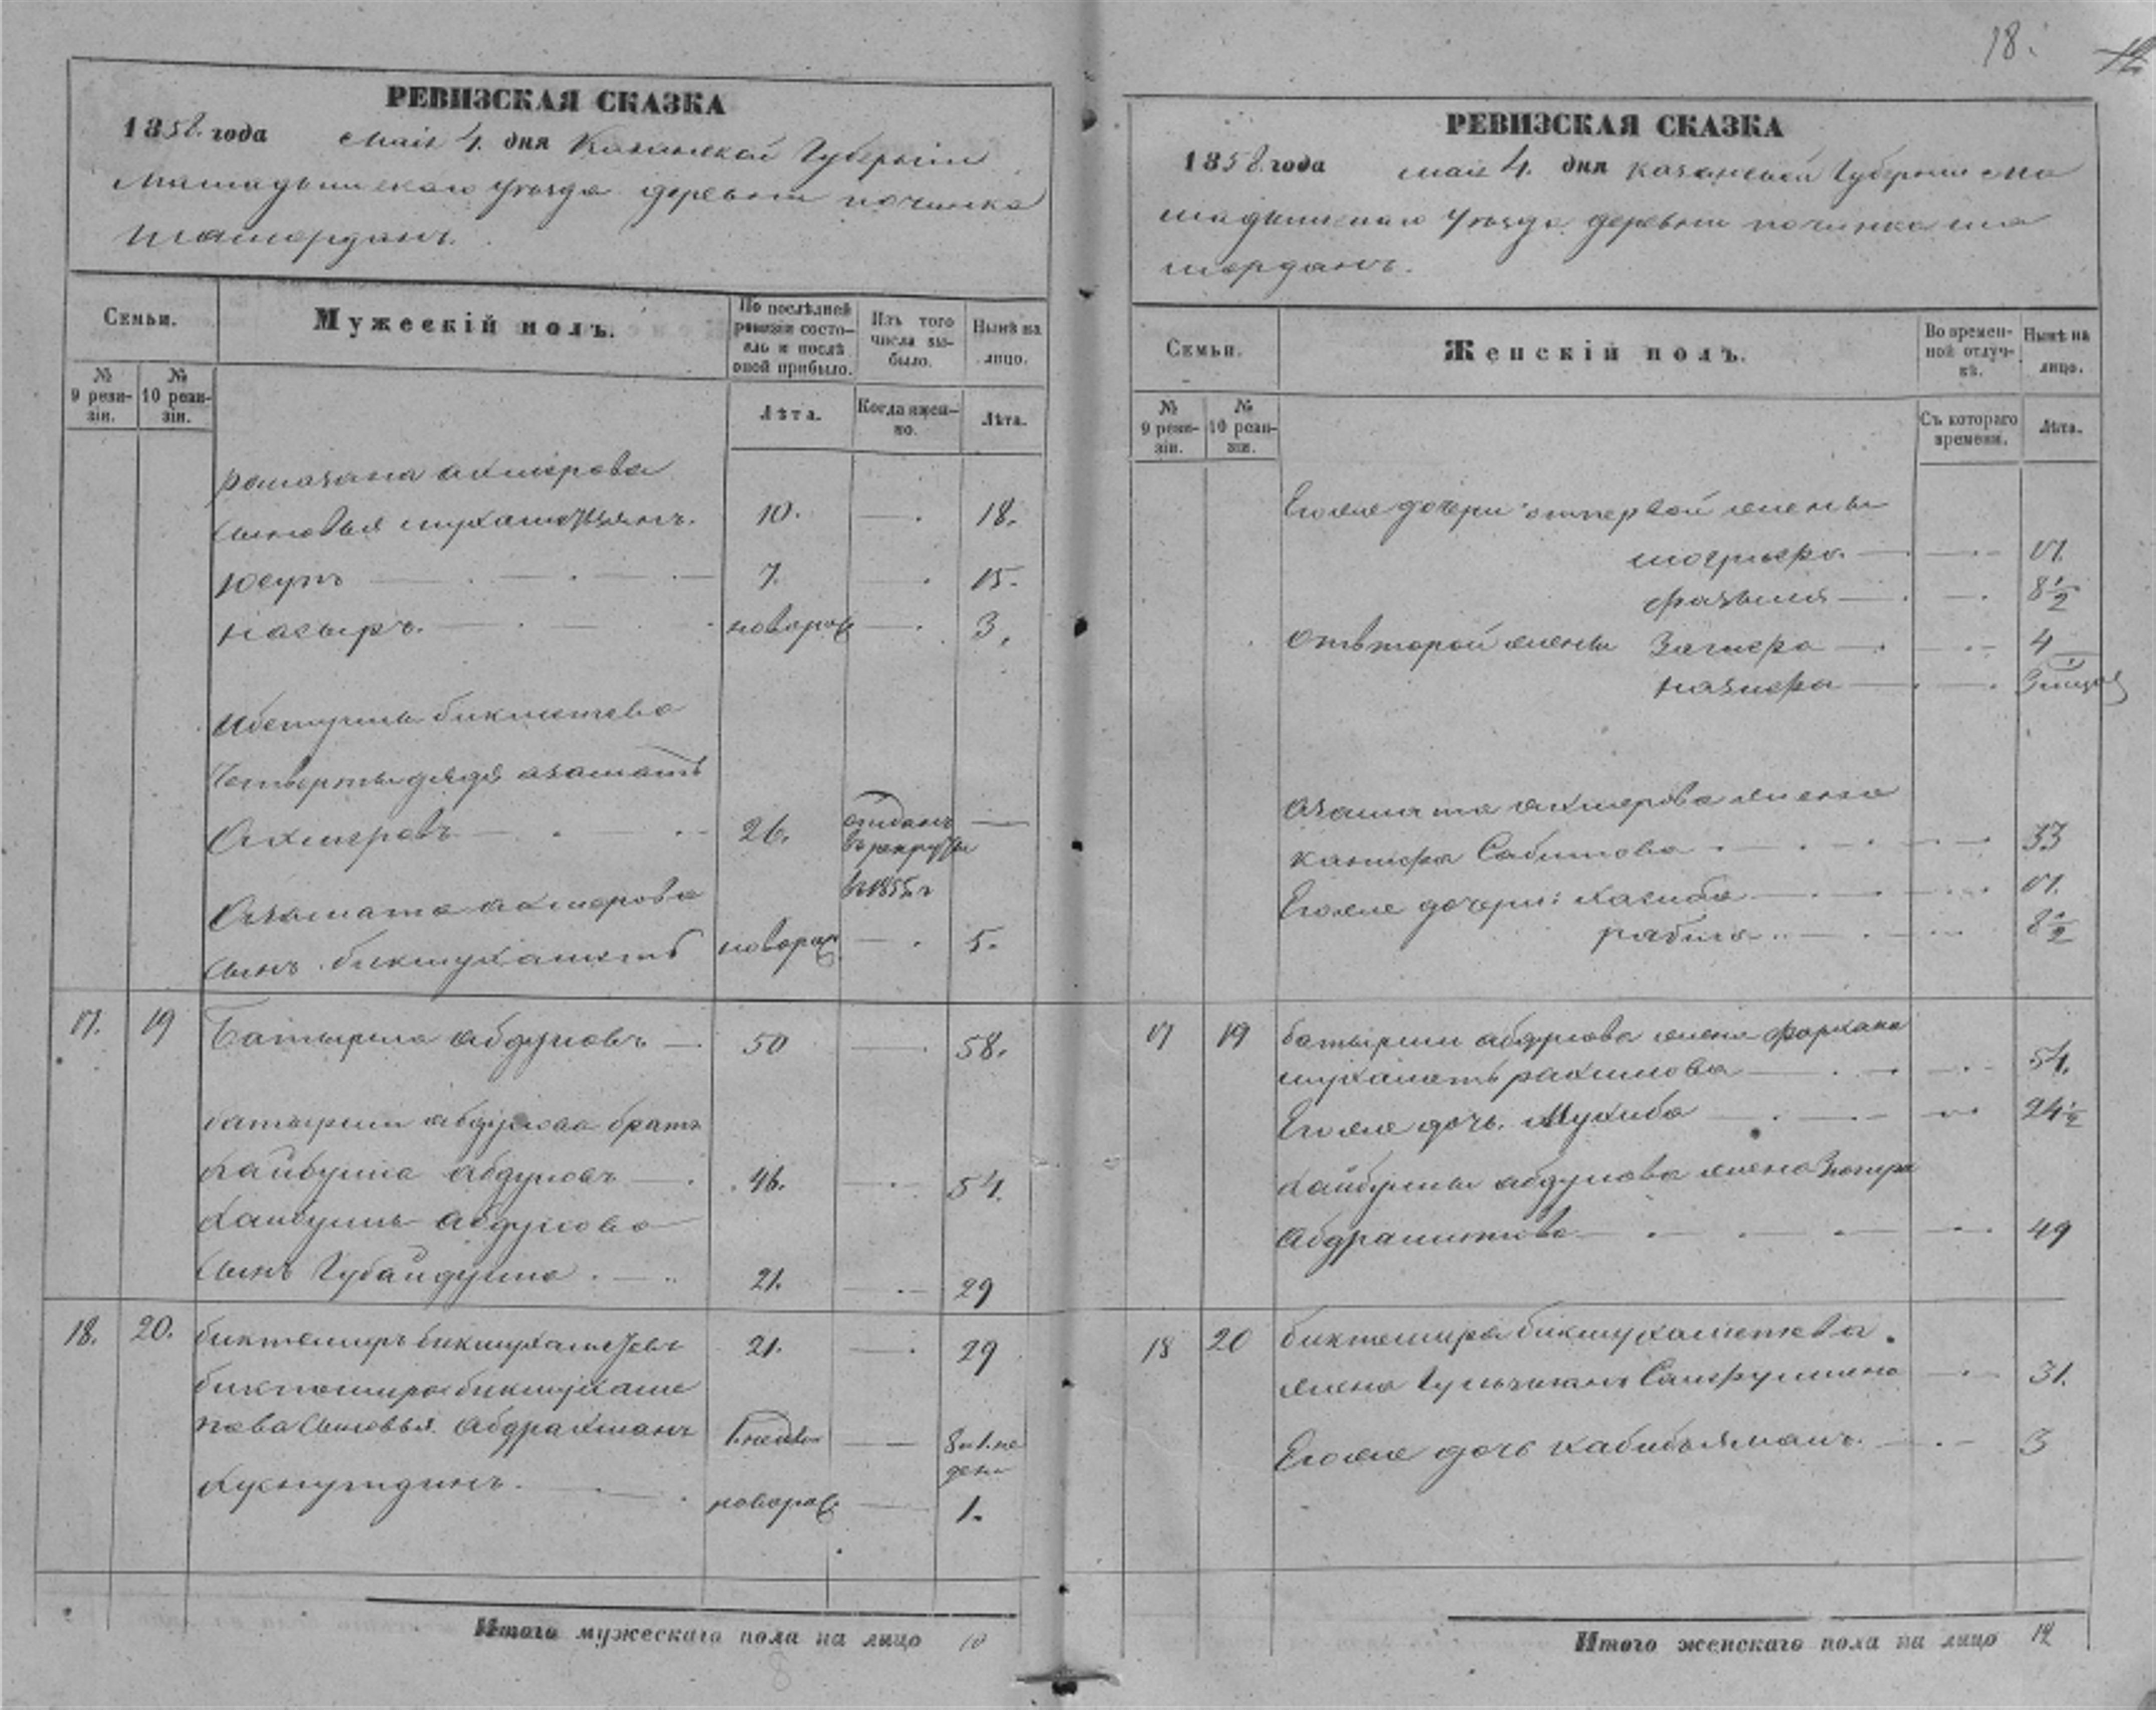 18.
РЕВИЗСКАЯ СКАЗКА
1858. года мая 4. дня Казанской Губернии
Мамадышскаго уѣзда деревни починка
Шемордана.
Семьи.
Мужескій полъ.
По послѣдней ревизіи состояло и послѣ оной прибыло.
Изъ того числа выбыло.
Нынѣ на лицо.
№ 9 ревизіи.
№ 10 ревизіи.
Лѣта.
Когда именно.
Лѣта.
рамазана ахмерова
сыновья мухаметзянъ. 10. — 18.
юсупъ — 7. — 15.
насыръ. — новорож — 3.
бикметева
Четверты дядя азаматъ
Ахмеровъ — 26. отданъ —
въ рекруты
въ 1855 г
Азамата ахмерова
сынъ бикмухаметъ новорож — 5.
17. 19 Батырша абдуловъ — 50 — 58.
батырши абдулова братъ
хайбулла абдуловъ — 46. — 54.
хайбуллы абдулова
сынъ Губайдулла. — 21. — 29
18. 20. биктемиръ бикмухаметевъ 21. — 29
биктемира бикмухаме
това сыновья абдрахманъ 1. недел — 8 и 1. не
дели
хуснутдинъ. — новорож. — 1.
Итого мужескаго пола на лицо 10
8
РЕВИЗСКАЯ СКАЗКА
1858. года мая 4. дня казанской Губернии ма
мадышскаго уѣзда деревни починка ше
мордана.
Семьи.
Женскій полъ.
Во временной отлучкѣ.
Нынѣ на лицо.
№ 9 ревизіи.
№ 10 ревизіи.
Съ котораго времени.
Лѣта.
Егоже дочери отпервой жены
— 17.
— 8 1/2
отвторой жены — 4
назмера — 3 мѣсяц
азамата ахмерова жена
Сабитова — 33
Егоже дочери: хасиба — 17.
рабига — 8 1/2
17 19 батырши абдулова жена фархана
мухаметьрахимова — 54.
Егоже дочь. Мухиба — 24 1/2
хайбуллы абдулова жена
абдрашитова — 49
18 20 биктемира бикмухаметева.
жена — 31.
Егоже дочь хабибьямалъ. — 3
Итого женскаго пола на лицо 12